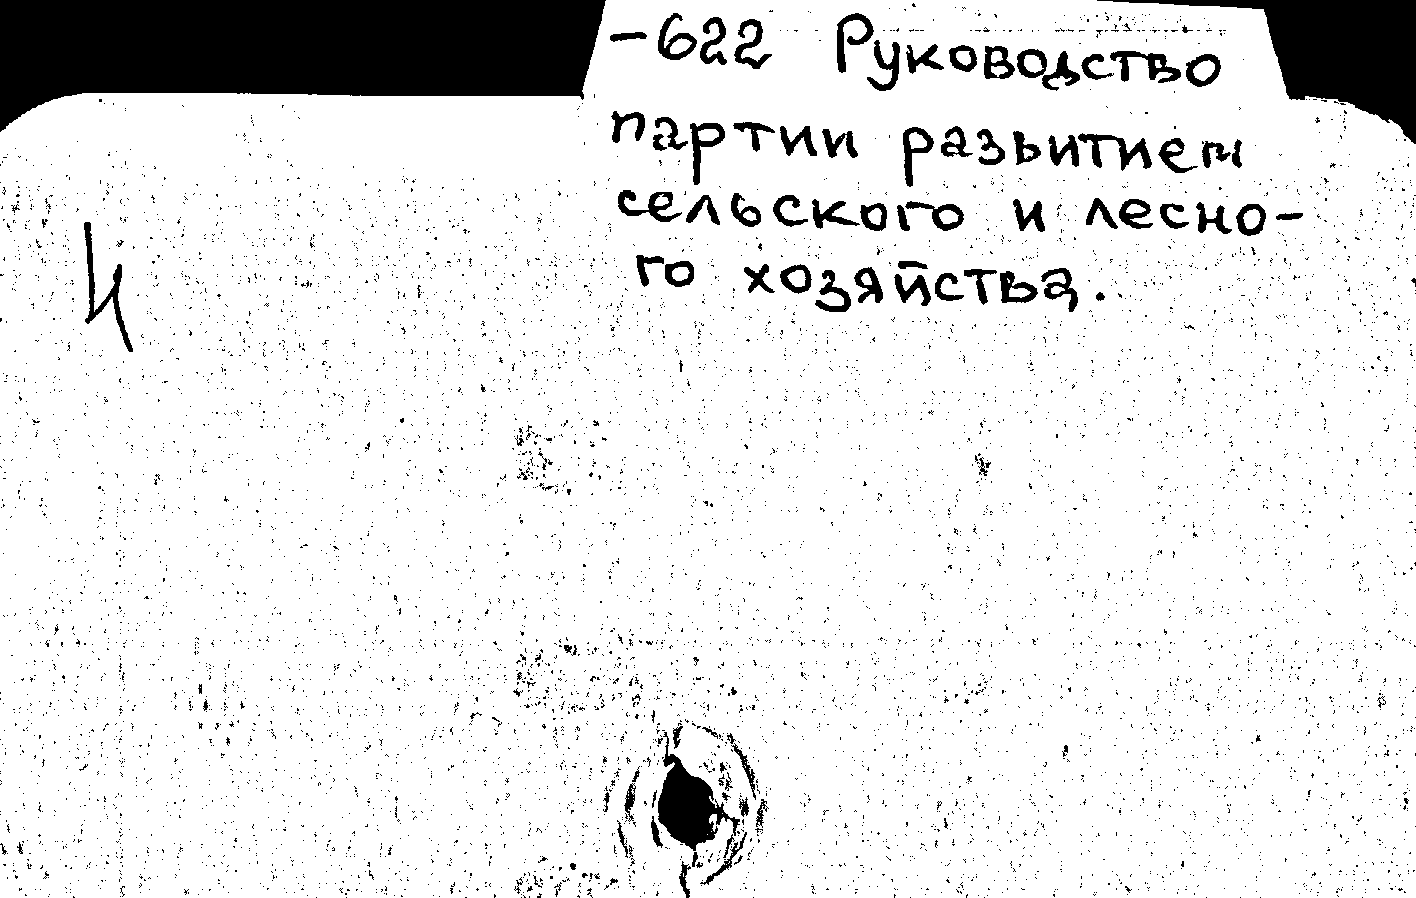 -622 Руководство
партии развитием
сельского и лесно-
го хозяйства.